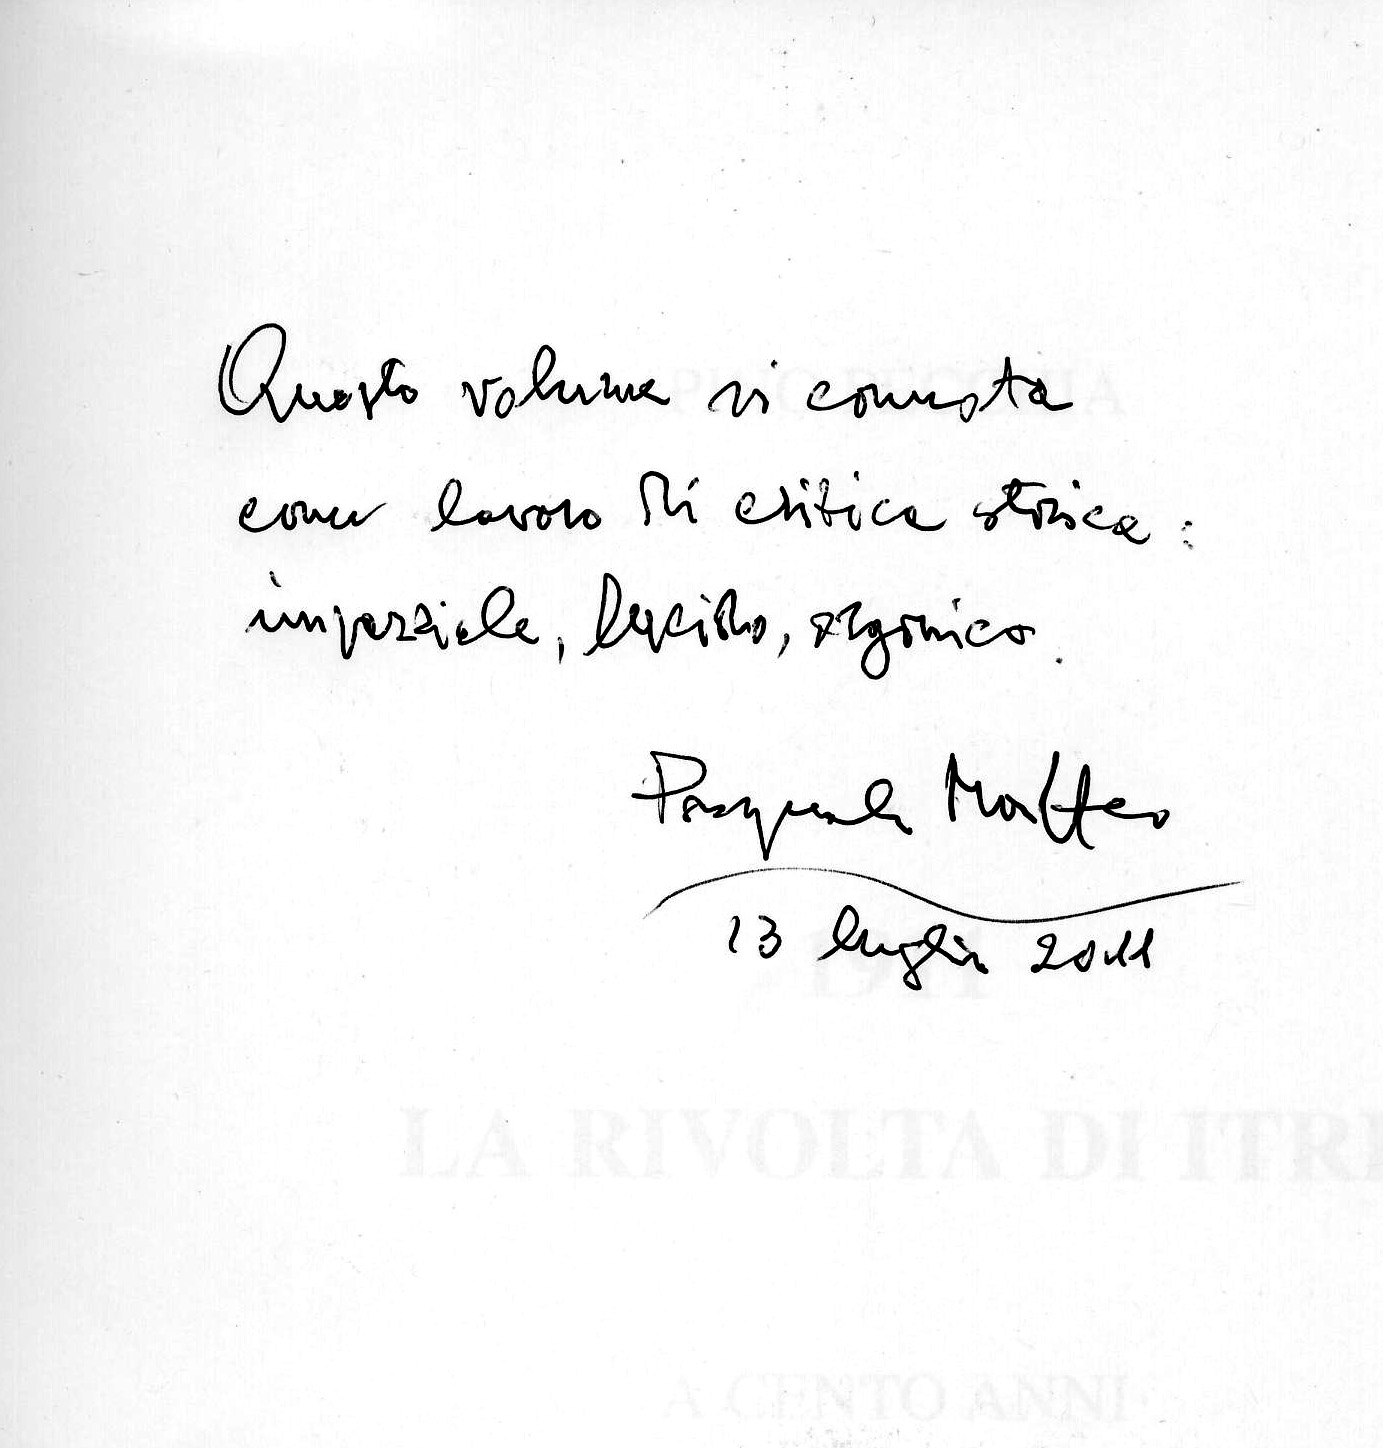 Questo volume si connota
come lavoro di critica storica:
imparziale, lucido, organico.
Pasquale Matteo
13 luglio 2011
LA RIVOLTA DI ITRI
A CENTO ANNI